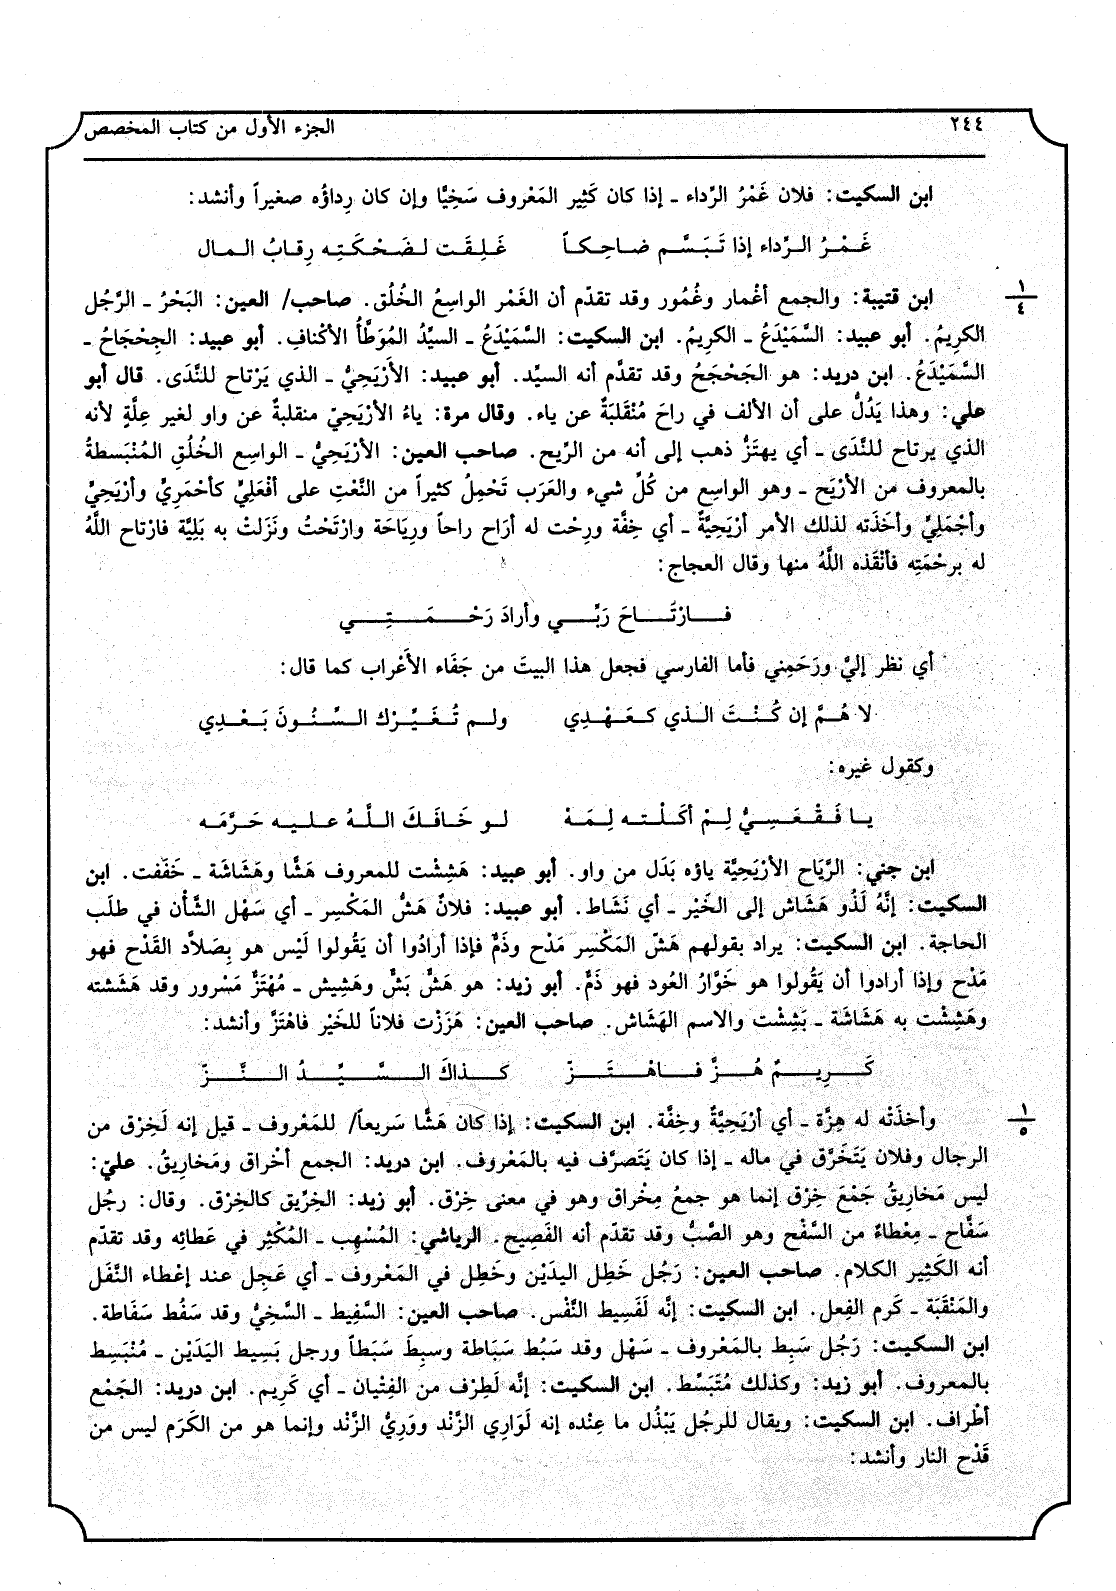 ٢٤٤ الجزء الأول من كتاب المخصص
ابن السكيت: فلان غَمْرُ الرِّداء ـ إذا كان كَثِير المَعْروف سَخِيًّا وإن كان رِداؤه صغيراً وأنشد:
غَمْرُ الرِّداء إذا تَبَسَّم ضاحِكاً غَلِقَت لضَحْكَتِه رِقابُ المال
١
٤
ابن قتيبة: والجمع أغْمار وغُمُور وقد تقدّم أن الغَمْر الواسِعُ الخُلُق. صاحب/ العين: البَحْرُ ـ الرَّجُل
الكرِيمُ. أبو عبيد: السَّمَيْدَعُ ـ الكرِيمُ. ابن السكيت: السَّمَيْدَعُ ـ السيِّدُ المُوَطَّأُ الأكْنافِ. أبو عبيد: الجِحْجَاحُ ـ
السَّمَيْدَعُ. ابن دريد: هو الجَحْجَحُ وقد تقدَّم أنه السيِّد. أبو عبيد: الأَرْيَحِيُّ ـ الذي يَرْتاح للنَّدَى. قال أبو
علي: وهذا يَدُلُّ على أن الألف في راحَ مُنْقَلِبَةٌ عن ياء. وقال مرة: ياءُ الأرْيَحِيّ منقلبةٌ عن واو لغير عِلَّةٍ لأنه
الذي يرتاح للنَّدَى ـ أي يهتَزُّ ذهب إلى أنه من الرِّيح. صاحب العين: الأرْيَحِيُّ ـ الواسِع الخُلُقِ المُنْبَسطةُ
بالمعروف من الأرْيَح ـ وهو الواسِع من كُلِّ شيء والعَرَب تَحْمِلُ كثيراً من النَّعْتِ على أفْعَلِيٍّ كأحْمَرِيٍّ وأرْيَحِيٍّ
وأجْمَلِيٍّ وأخَذَته لذلك الأمر أرْيَحِيَّةٌ ـ أي خِفَّة ورِحْت له أرَاح راحاً ورِيَاحَة وارْتَحْتُ ونَزَلتْ به بَلِيَّة فارْتاح اللَّهُ
له برحْمَتِه فأنْقَذه اللَّهُ منها وقال العجاج:
فارْتَاحَ رَبِّي وأرادَ رَحْمَتِي
أي نظر إليَّ ورَحَمِني فأما الفارسي فجعل هذا البيتَ من جَفَاء الأَعْراب كما قال:
لا هُمَّ إن كُنْتَ الذي كعَهْدِي ولم تُغَيِّرْك السِّنُونَ بَعْدِي
وكقول غيره:
يا فَقْعَسِيُّ لِمْ أكَلْته لِمَهْ لو خَافَكَ اللَّهُ عليه حَرَّمَه
ابن جني: الرِّيَاح الأرْيَحِيَّة ياؤه بَدَل من واو. أبو عبيد: هَشِشْت للمعروف هَشًّا وهَشَاشَة ـ خَفَفت. ابن
السكيت: إنَّهُ لَذُو هَشَاش إلى الخَيْر ـ أي نَشَاط. أبو عبيد: فلانٌ هَشُّ المَكْسِر ـ أي سَهْل الشَّأن في طلَب
الحاجة. ابن السكيت: يراد بقولهم هَشّ المَكْسِر مَدْح وذَمٌّ فإذا أرادُوا أن يَقُولوا لَيْس هو بِصَلاَّد القَدْح فهو
مَدْح وإذا أرادوا أن يَقُولوا هو خَوَّارُ العُود فهو ذَمٌّ. أبو زيد: هو هَشٌّ بَشٌّ وهَشِيش ـ مُهْتَزٌّ مَسْرور وقد هَشَشته
وهَشِشْت به هَشَاشَة ـ بَشِشْت والاسم الهَشَاش. صاحب العين: هَزَزْت فلاناً للخَيْر فاهْتَزَّ وأنشد:
كَرِيمٌ هُزَّ فاهْتَزّ كذاكَ السَّيِّدُ النَّزّ
١
٥
وأخذَتْه له هِزَّة ـ أي أرْيَحِيَّةٌ وخِفَّة. ابن السكيت: إذا كان هَشًّا سَريعاً/ للمَعْروف ـ قيل إنه لَخِرْق من
الرجال وفلان يَتَخَرَّق في ماله ـ إذا كان يَتَصرَّف فيه بالمَعْروف. ابن دريد: الجمع أخْراق ومَخارِيقُ. عليّ:
ليس مَخارِيقُ جَمْعَ خِرْق إنما هو جمعُ مِخْراق وهو في معنى خِرْق. أبو زيد: الخِرِّيق كالخِرْق. وقال: رجُل
سَفَّاح ـ مِعْطاءٌ من السَّفْح وهو الصَّبُّ وقد تقدّم أنه الفَصِيح. الرياشي: المُسْهِب ـ المُكْثِر في عَطائِه وقد تقدّم
أنه الكَثِير الكلام. صاحب العين: رَجُل خَطِل اليدَيْن وخَطِل في المَعْروف ـ أي عَجِل عند إعْطاء النَّفَل
والمَنْقَبَة ـ كَرم الفِعل. ابن السكيت: إنَّه لَفَسِيط النَّفْس. صاحب العين: السَّفِيط ـ السَّخِيُّ وقد سَفُط سَفَاطة.
ابن السكيت: رَجُل سَبِط بالمَعْروف ـ سَهْل وقد سَبُط سَبَاطة وسبِطَ سَبَطاً ورجل بَسِيط اليَدَيْن ـ مُنْبَسِط
بالمعروف. أبو زيد: وكذلك مُتَبَسِّط. ابن السكيت: إنَّه لَطِرْف من الفِتْيان ـ أي كَرِيم. ابن دريد: الجَمْع
أطْراف. ابن السكيت: ويقال للرجُل يَبْذُل ما عِنْده إنه لَوَارِي الزَّند ووَرِيُّ الزَّنْد وإنما هو من الكَرَم ليس من
قَدْح النار وأنشد: